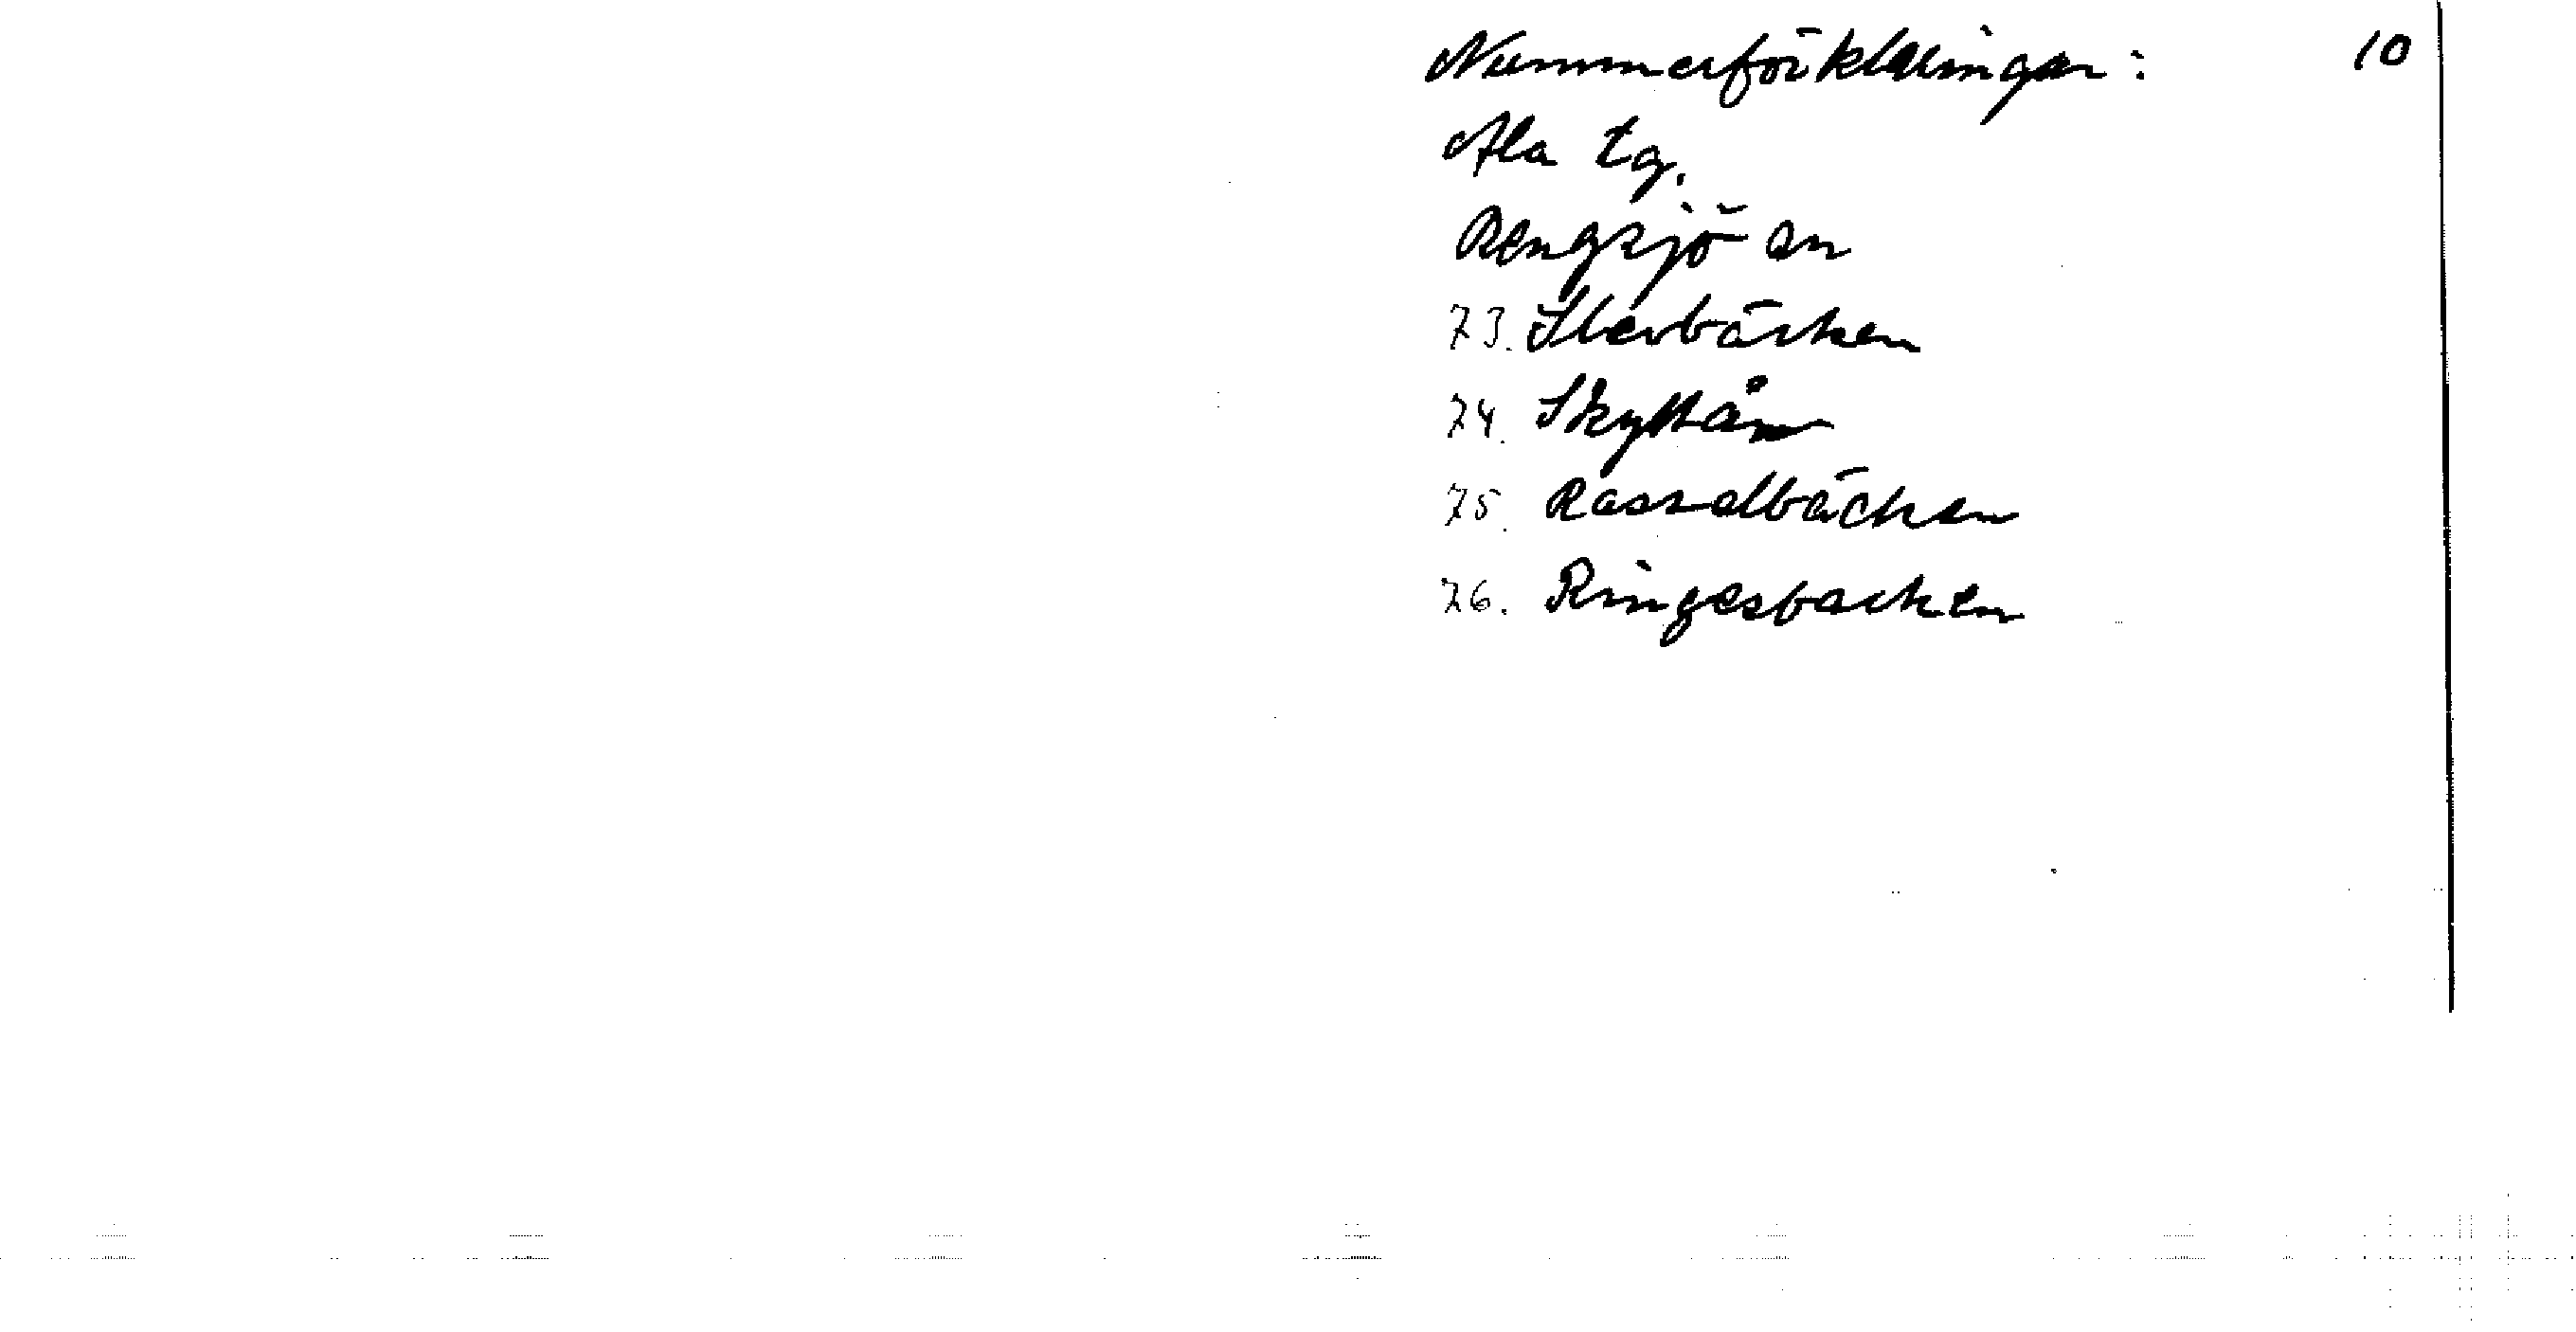 Nummerförklaringar: 10
Ala tg.
Rengsjö sn
73. Slevbäcken
74. Skyttån
75. Rasselbäcken
76. Ringesbacken